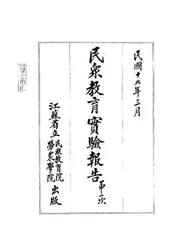 民國十九年三月
民眾教育實驗報告第一次
江蘇省立民眾教育院勞農學院出版